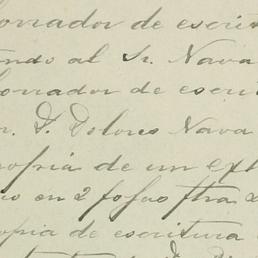 borrador de escrit
ando al Sr. Nava
borrador de escrit
D. Dolores Nava
copia de un ext
en 2 fojas
copia de escritura